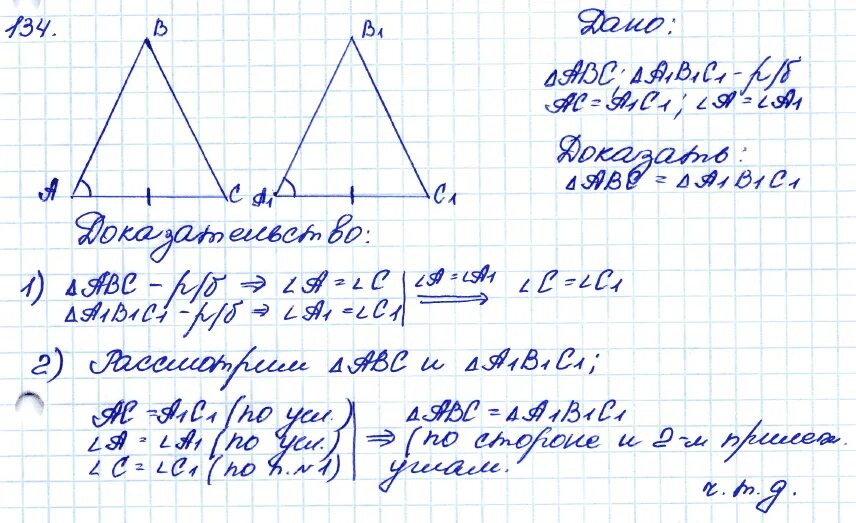 134.
B
B1
A
C
A1
C1
Дано:
ΔABC; ΔA1B1C1 - р/б
AC = A1C1; ∠A = ∠A1
Доказать:
ΔABC = ΔA1B1C1
Доказательство:
1) ΔABC - р/б ⇒ ∠A = ∠C | ∠A = ∠A1 ⇒ ∠C = ∠C1
ΔA1B1C1 - р/б ⇒ ∠A1 = ∠C1
2) Рассмотрим ΔABC и ΔA1B1C1;
AC = A1C1 (по усл.)
∠A = ∠A1 (по усл.)
∠C = ∠C1 (по п.№1)
⇒ ΔABC = ΔA1B1C1
(по стороне и 2-м прилеж.
углам.
ч.т.д.